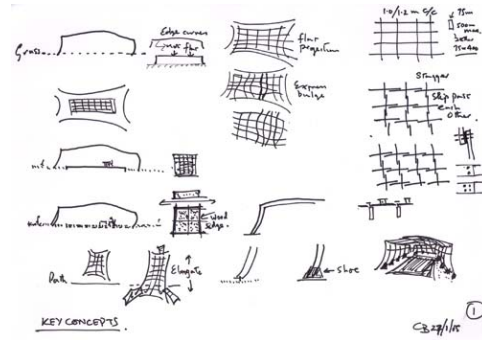 Grass
Edge curves
not flat
flat
projection
Express
bridge
1.0/1.2 m c/c
75m
500m
max.
better
75x400
Stagger
Slip pass
each
other
wood
edge
Path
Elongate
shoe
KEY CONCEPTS.
1
CB 27/1/15